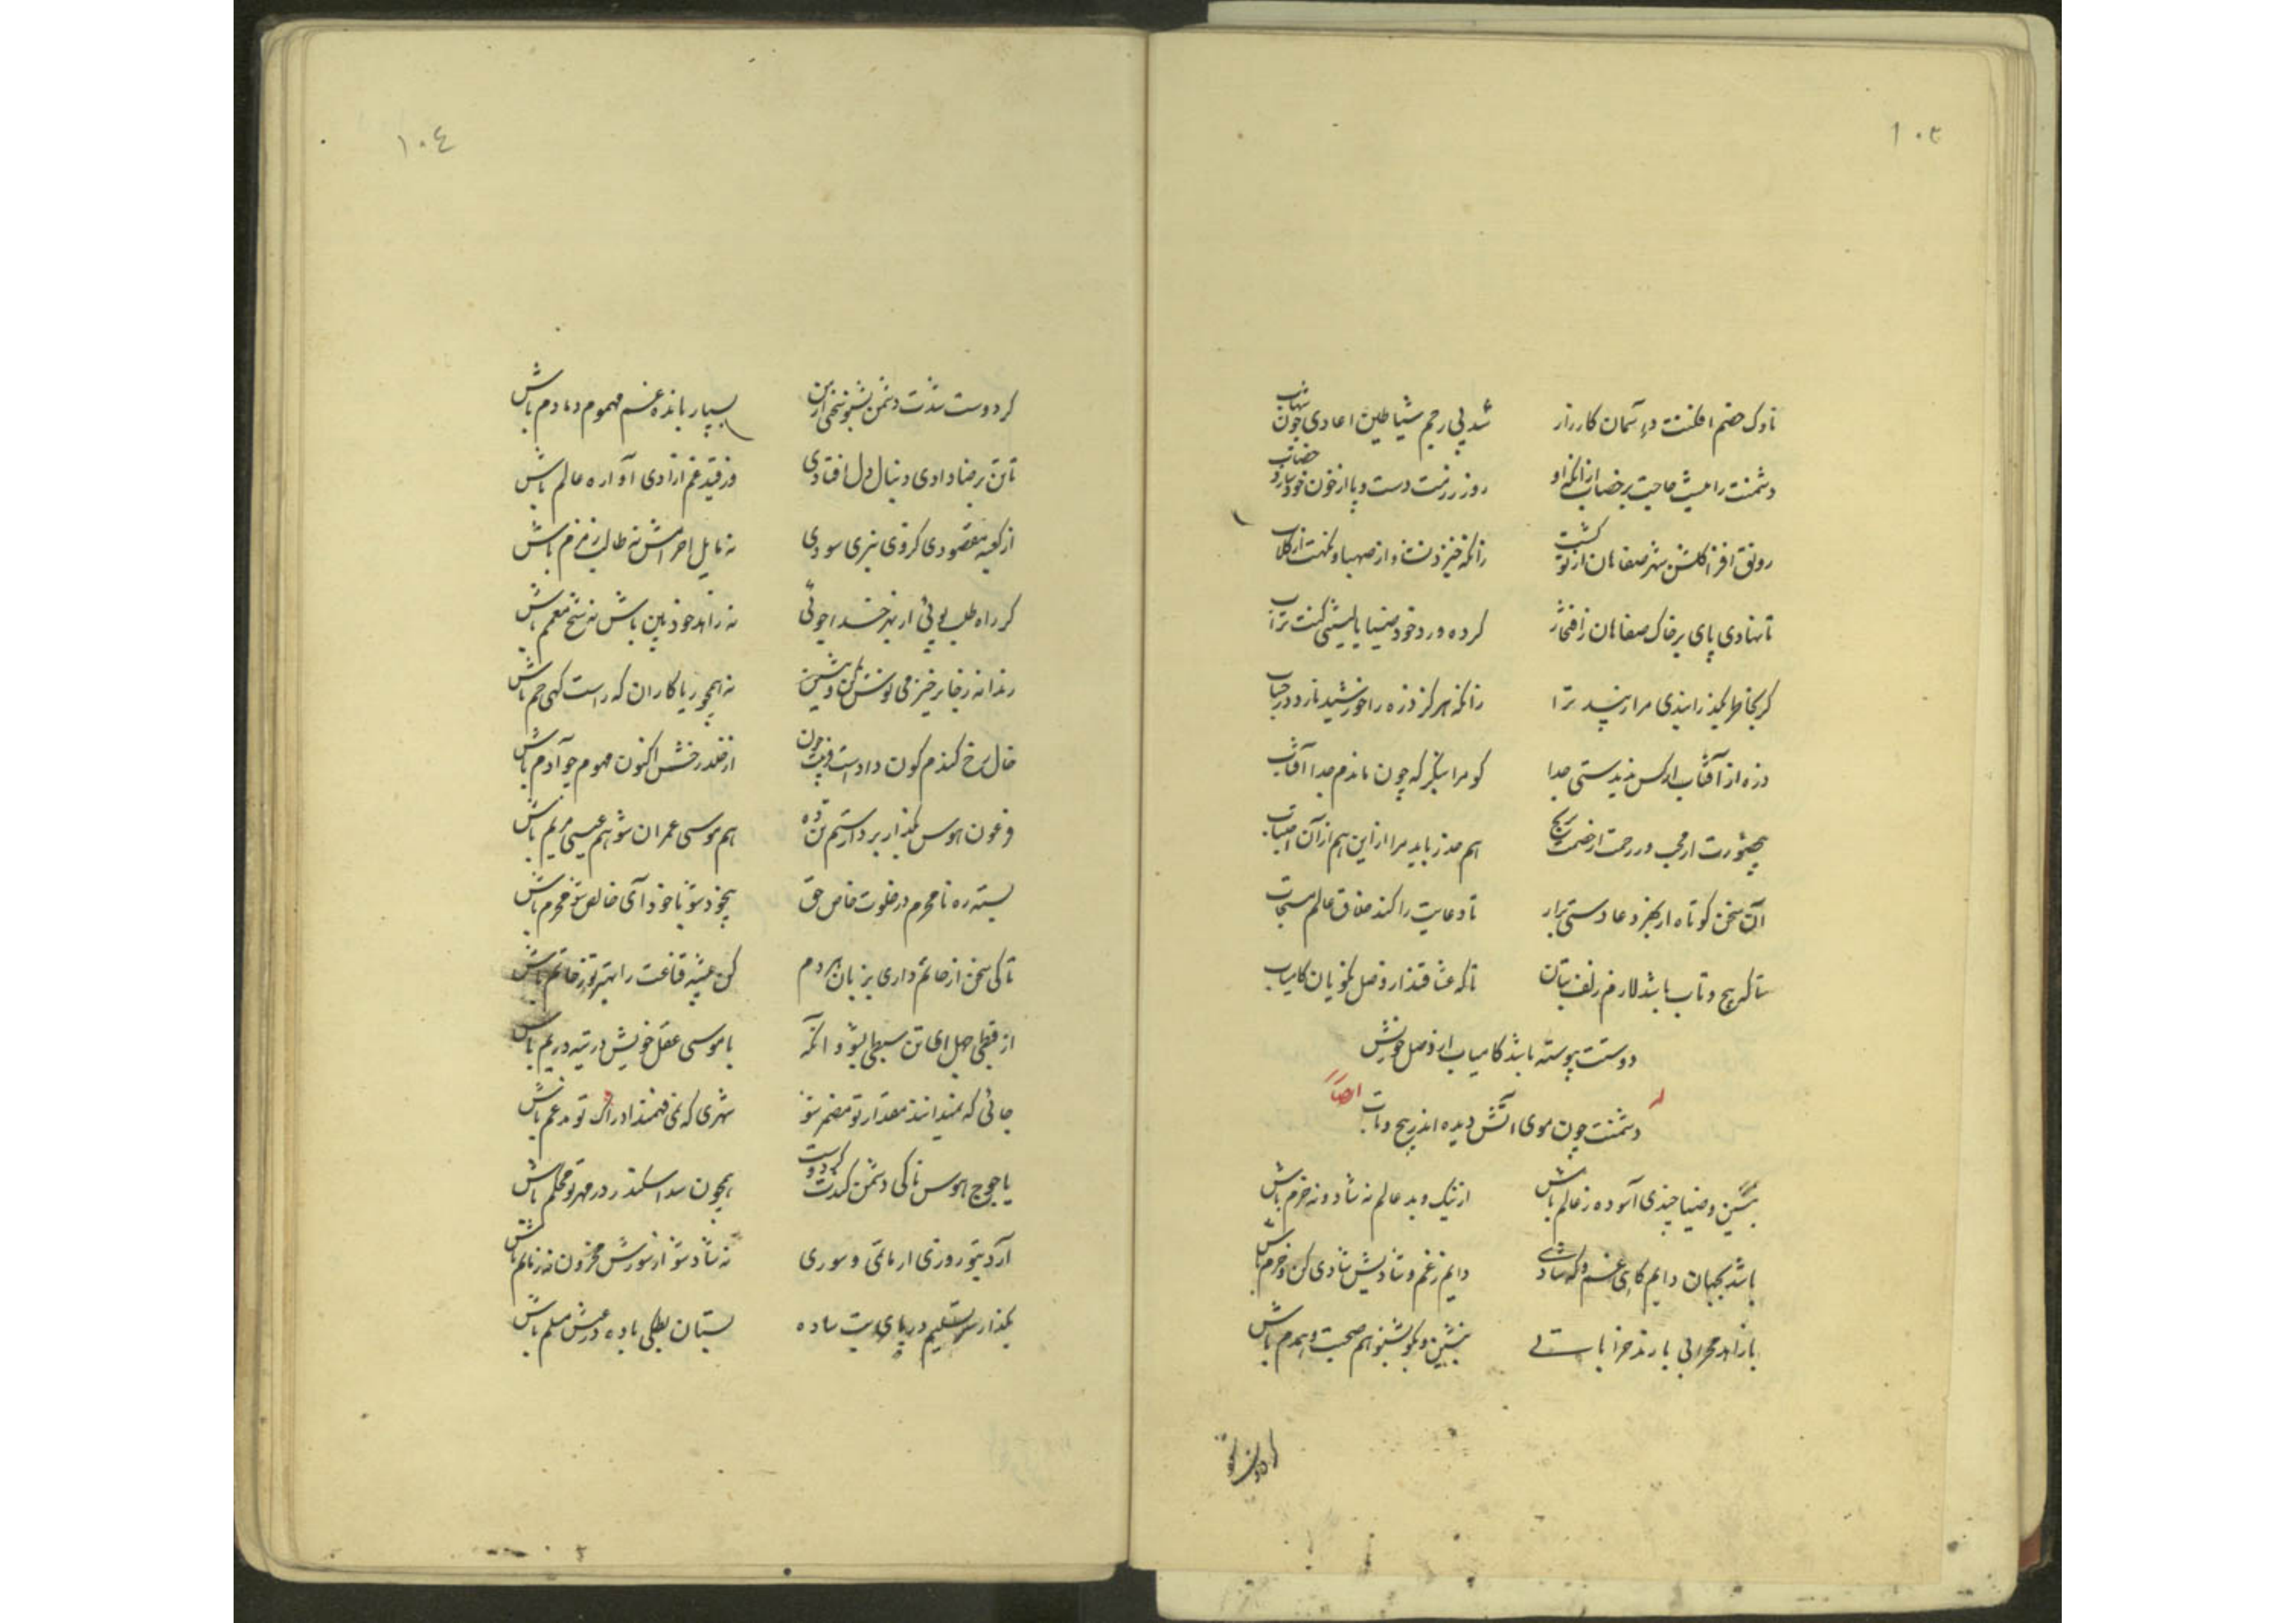 ١٠٣
ناوک خصم افکنت در آسمان کارزار
شد پی رجم شیاطین اعادی چون شهاب
دشمنت را نیست حاجت بر خضاب از آنکه او
روز رزمت دست و پا از خون خود سازد خضاب
رونق افزا گلشن شهر صفاهان از تو گشت
زانکه خیزد نشئه از صهبا و نکهت از گلاب
تا نهادی پای بر خاک صفاهان ز افتخار
کرده ورد خود ضیا یا لیتنی کنت تراب
زانکه هرگز ذره را خورشید نارد در حساب
ذره از آفتاب ار کس ندیدستی جدا
کو مرا بنگر که چون ماندم جدا ز آفتاب
هم حذر باید مرا از این هم از آن اجتناب
آن سخن کوتاه از بهر دعا دستی برار
تا دعایت را کند خلاق عالم مستجاب
تا که پیچ و تاب باشد لازم زلف بتان
تا که عشاقند از وصل نکویان کامیاب
دوستت پیوسته باشد کامیاب از وصل خویش
دشمنت چون موی آتش دیده اندر پیچ و تاب
و له ایضا
بنشین و ضیا چندی آسوده ز عالم باش
از نیک و بد عالم نه شاد و نه خرم باش
باشد بجهان دایم گاهی غم و گه شادی
دایم ز غم و شادیش شادی کن و خرم باش
با زاهد محرابی با رند خراباتی
بنشین و بگو بشنو هم صحبت و همدم باش
گر دوست
١٠٤
گر دوست شدت دشمن بشنو سخنی از من
بسیار بانده غم مهموم دمادم باش
تا تن برضا دادی دنبال دل افتادی
در قید غم ازادی آواره عالم باش
از کعبه مقصودی گر وی نبری سودی
نه مایل احرامش نه طالب زمزم باش
گر راه طلب پوئی ار نیز خدا جوئی
نه زاهد خودبین باش نه شیخ معمم باش
رندانه ز جا برخیز می نوش کن و بنشین
نه همچو ریاکاران گه راست گهی خم باش
خال رخ گندم گون دادست فریبت چون
از خلد رخش اکنون مهموم چو آدم باش
فرعون هوس بگذار بر دار ستم تن ده
هم موسی عمران شو هم عیسی مریم باش
بسته ره نامحرم در خلوت خاص حق
بیخود شو با خود آی خالص شو محرم باش
تا کی سخن از حاتم داری بزبان هردم
کن پیشه قناعت را بهتر تو ز حاتم باش
از قبطی جهل ای تن سبطی بشو و آنگه
با موسی عقل خویش در تیه در یم باش
جائی که نمیدانند مقدار تو مضمر شو
شهری که نمی فهمند ادراک تو مدغم باش
یاجوج هوس تا کی دشمن کندت گر دوست
همچون سد اسکندر در مهر تو محکم باش
آرد بتو روزی ار ماتمی و سوری
نه شاد شو از سورش محزون نه ز ماتم باش
بگذار سر تسلیم در پای بت ساده
بستان بطکی باده در عیش مسلم باش